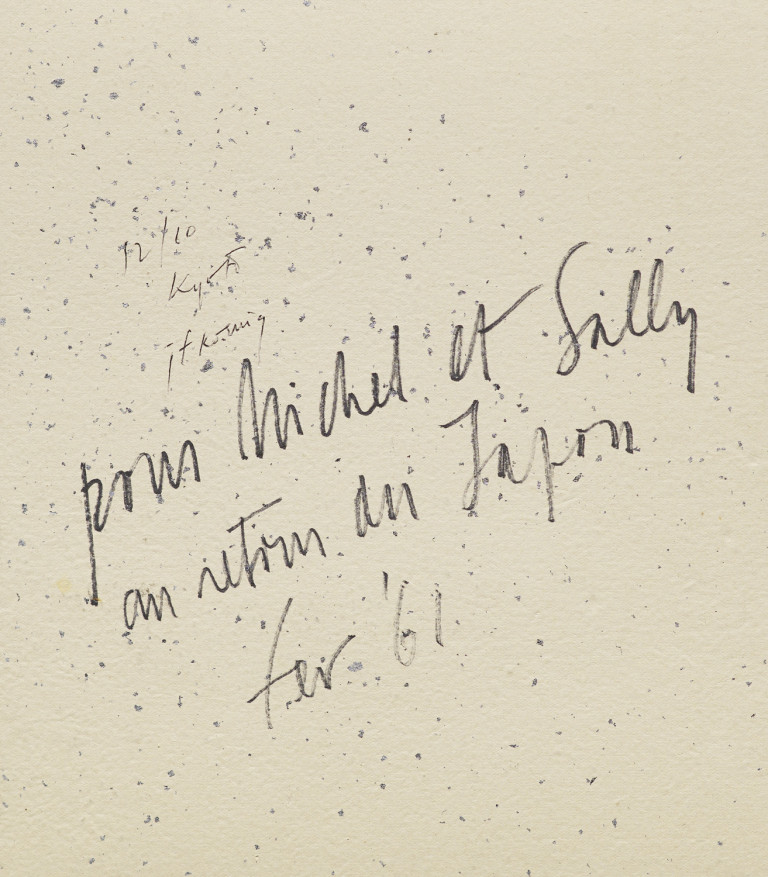 12/10
Kyoto
jfkoenig
pour Michel et Sally
au retour du Japon
fev '61